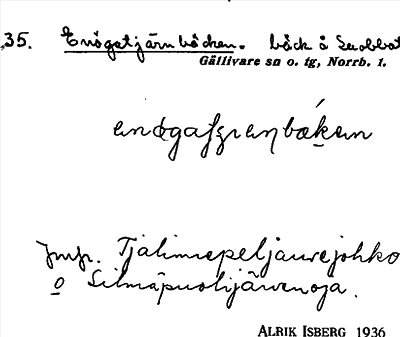 35. Enögatjärnbäcken. bäck å Suobbat
Gällivare sn o. tg, Norrb. l.
Jmfr. Tjalimmepeljaurejohko
o Silmäpuolijärvenoja.
ALRIK ISBERG 1936